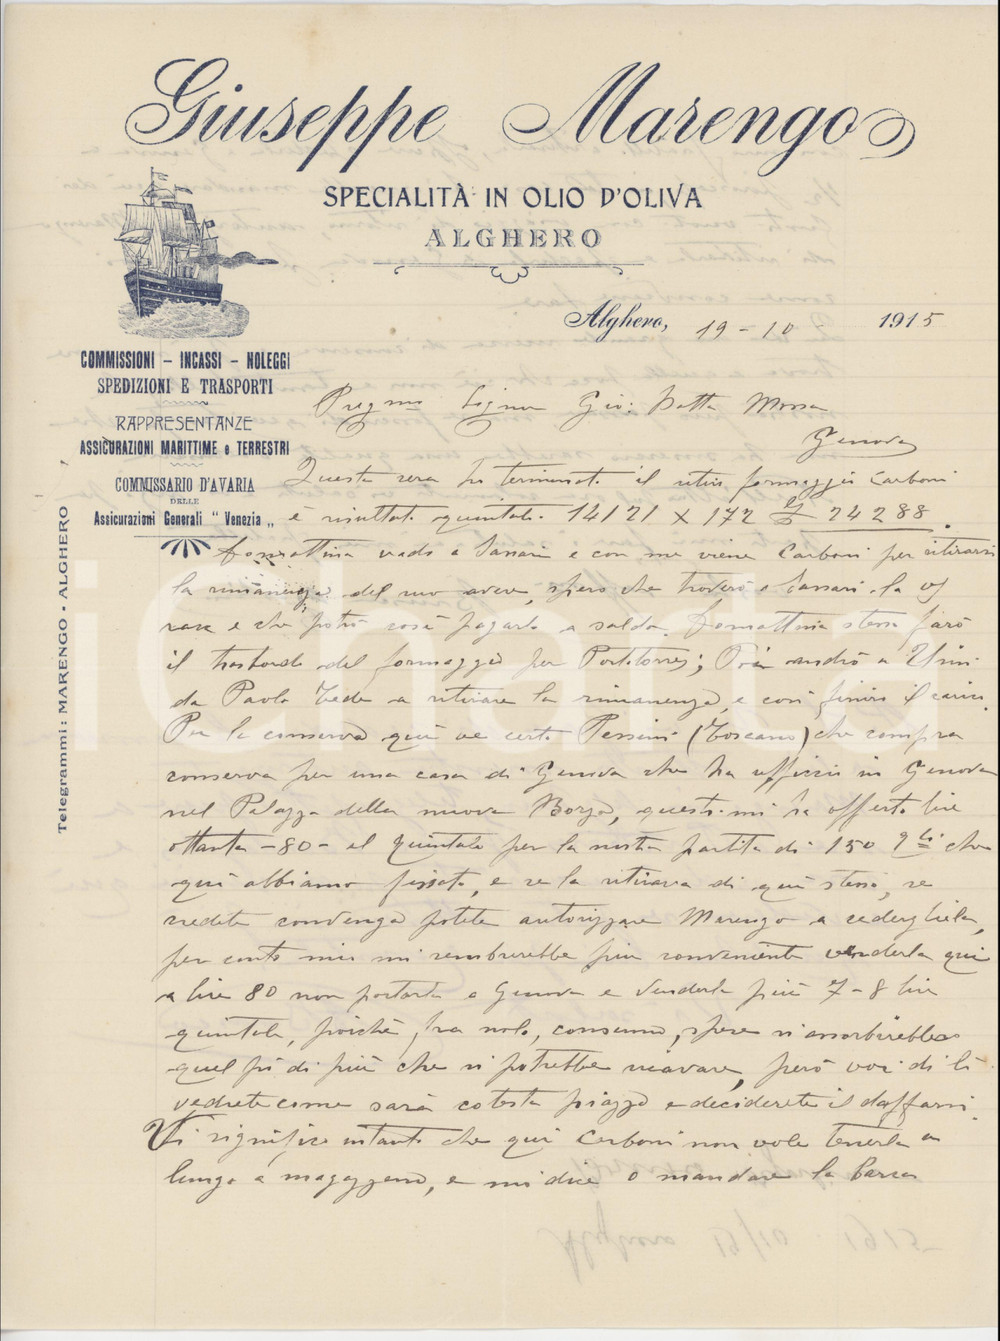 Giuseppe Marengo
SPECIALITÀ IN OLIO D'OLIVA
ALGHERO
Alghero, 19 - 10 1915
COMMISSIONI - INCASSI - NOLEGGI
SPEDIZIONI E TRASPORTI
RAPPRESENTANZE
ASSICURAZIONI MARITTIME e TERRESTRI
COMMISSARIO D'AVARIA
DELLE
Assicurazioni Generali " Venezia "
Telegrammi: MARENGO - ALGHERO
Pregmo Signor Gio: Batta Mossa
Genova
Questa sera ho terminato il ritiro formaggio Carboni
è risultato quintali 14121 x 172 £ 24288.
Domattina vado a Sassari e con me viene Carboni per ritirarsi
la rimanenza del suo avere, spero che troverò a Sassari la
e che potrò così pagarlo a saldo. Domattina stessa farò
il trasbordo del formaggio per Portotorres; Poi andrò a Usini
da Paolo a ritirare la rimanenza, e così finirò il carico.
Per la conserva qui vi è certo Pessini (Toscano) che compra
conserva per una casa di Genova che ha ufficio in Genova
nel Palazzo della nuova Borsa, questi mi ha offerto lire
ottanta - 80 - al quintale per la nostra partita di 150 qli che
qui abbiamo fissato, e se la ritirava di qui stesso, se
credete convenga potete autorizzare Marengo a cedergliela,
per conto mio mi sembrerebbe più conveniente venderla qui
a lire 80 non portarla a Genova e venderla più 7-8 lire
quintale, poichè fra nolo, consumo, spese si assorbirebbe
quel pò di più che si potrebbe ricavare, però voi di lì
vedrete come sarà cotesta piazza e deciderete il daffarsi.
Vi significo intanto che qui Carboni non vole tenerla a
lungo a magazzeno, e mi dice o mandare la barca
iCharta